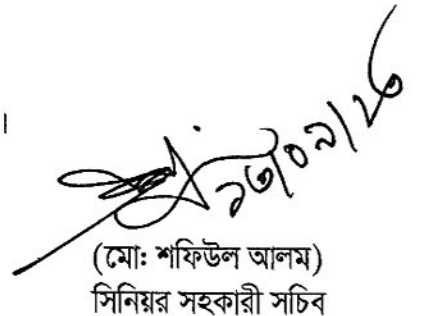 ।
(মো: শফিউল আলম)
সিনিয়র সহকারী সচিব